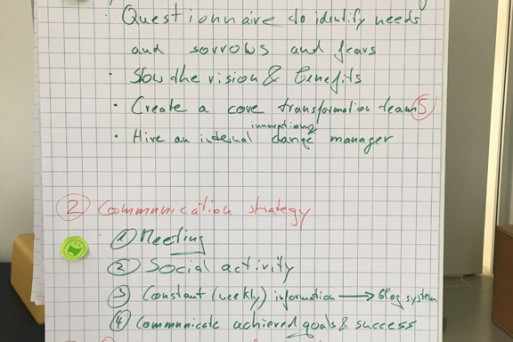 Questionnaire to identify needs
and sorrows and fears
• Show the vision & benefits
• Create a core transformation team 5
innovation &
• Hire an internal change manager
② Communication strategy
① Meeting
② Social activity
③ Constant (weekly) information → Blog system
④ Communicate achieved goals & success